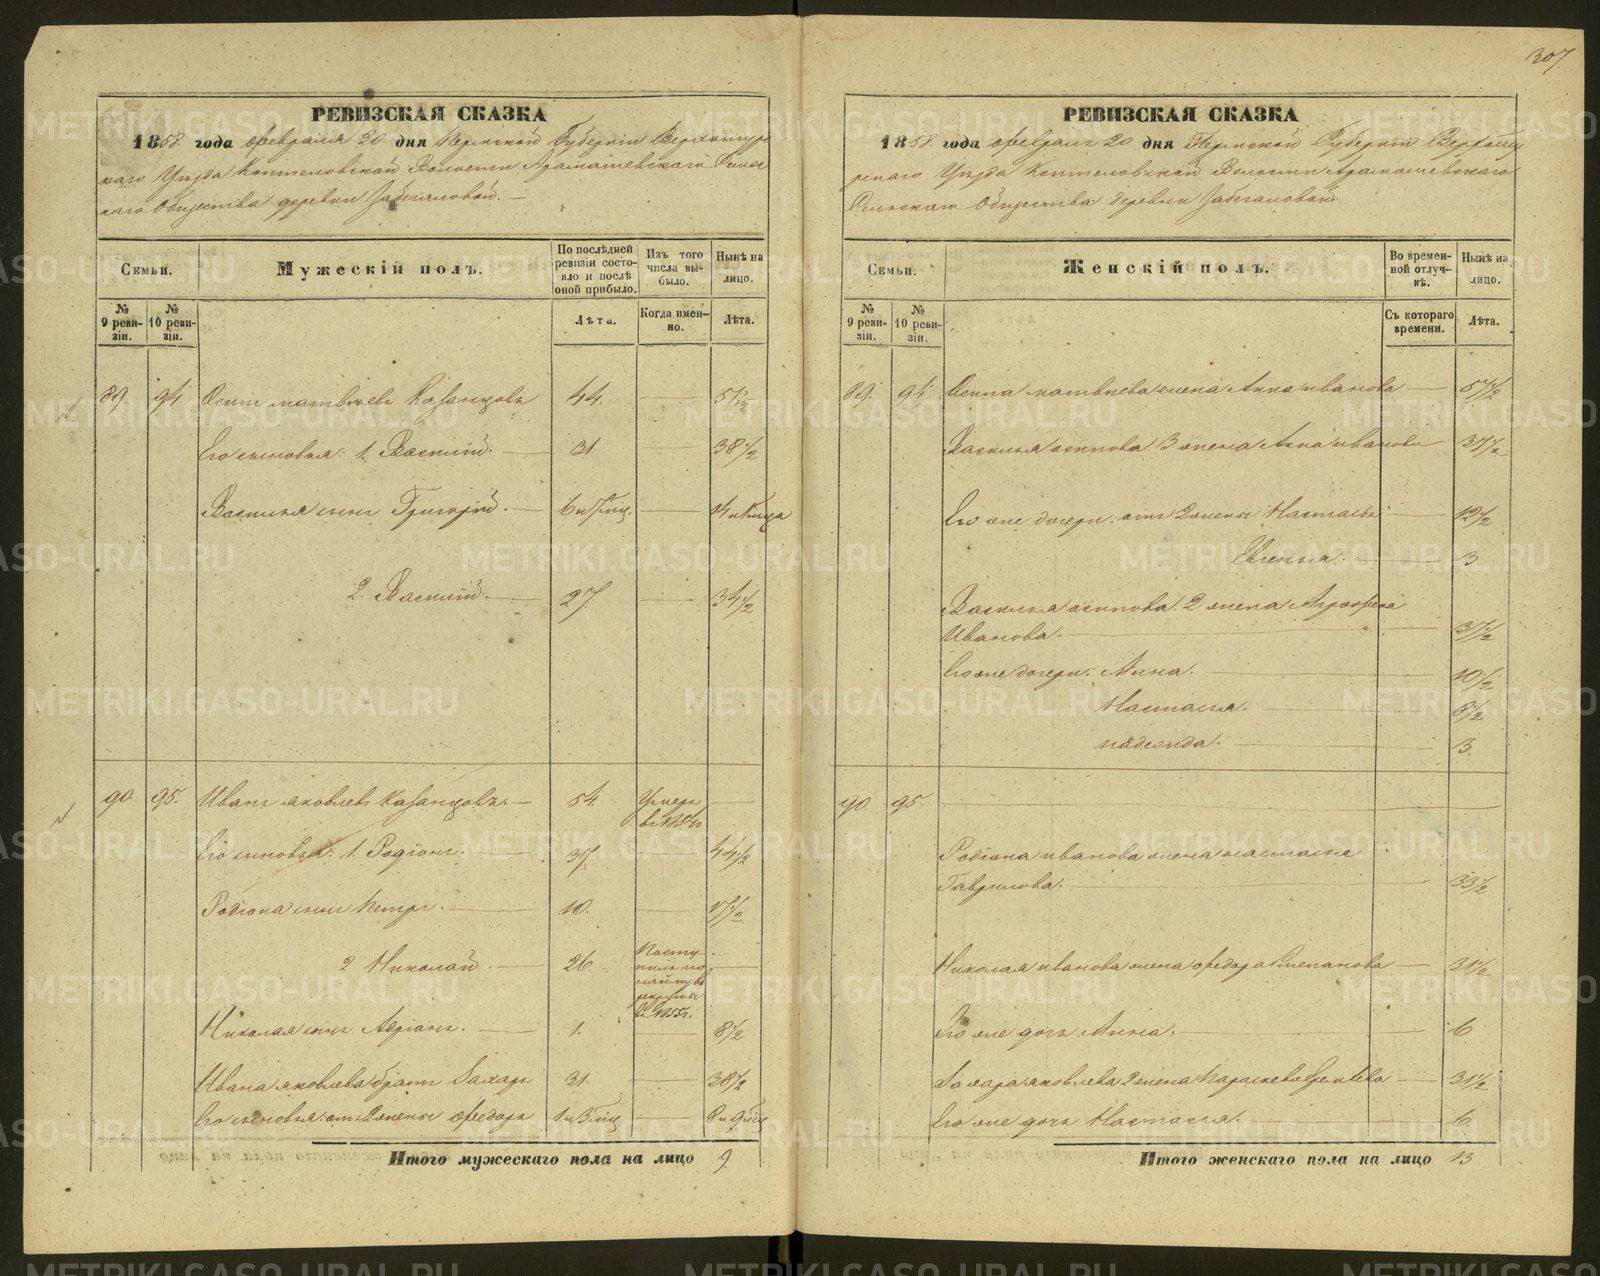 307.
РЕВИЗСКАЯ СКАЗКА
1858. года февраля 20 дня Пермской Губерніи Верхотурс
каго Уѣзда Коптеловской Волости Арамашевскаго Сельс
каго Общества деревни Забегаловой.
Семьи.
Мужескій полъ.
По послѣдней ревизіи состояло и послѣ оной прибыло.
Изъ того числа выбыло.
Нынѣ на лицо.
№ 9 ревизіи.
№ 10 ревизіи.
Лѣта.
Когда именно.
Лѣта.
89. 94 Осип матвѣевъ Казанцовъ 44. 51½
Его сыновья: 1. Василій. 31 38½
Василья сынъ Григорій. 6 и 7 мѣц. 14 и
2. Василій. 27 34½
90 95. Иванъ яковлевъ Казанцовъ. 54. Умеръ
въ
Его сыновья: 1. Родіонъ. 37. 44½
Родіона сынъ Петръ. 10. 17½
2 Николай. 26. Посту
пилъ
рекруты
въ 1855г.
Николая сынъ Адріанъ. 1. 8½
Ивана яковлева братъ Захаръ 31. 38½
Его сыновья: отъ 2 жены Федоръ 1 и 3 мѣц 8 и 9 мѣц
Итого мужескаго пола на лицо 9.
РЕВИЗСКАЯ СКАЗКА
1858. года февраля 20 дня Пермской Губерніи Верхоту
рскаго Уѣзда Коптеловской Волости Арамашевскаго
Сельскаго Общества деревни Забегаловой.
Семьи.
Женскій полъ.
Во временной отлучкѣ.
Нынѣ на лицо.
№ 9 ревизіи.
№ 10 ревизіи.
Съ котораго времени.
Лѣта.
89. 94 Осипа матвѣева жена Анна иванова 57½
Василья осипова 3 жена Анна иванова 37½
Его же дочери: отъ 2 жены Настасья 12½
Евгенья. 3
Василья осипова 2 жена Аграфена
Иванова. 37½
Его же дочери: Анна. 10½
Настасья. 8½
надежда. 3.
90 95.
Родіона иванова жена настасья
Гаврилова. 33½
Николая иванова жена федора Степанова 31½
Его же дочь Анна. 6
Захара яковлева 2 жена Парасковья 31½
Его же дочь Настасья. 6.
Итого женскаго пола на лицо 13
METRIKI.GASO-URAL.RU